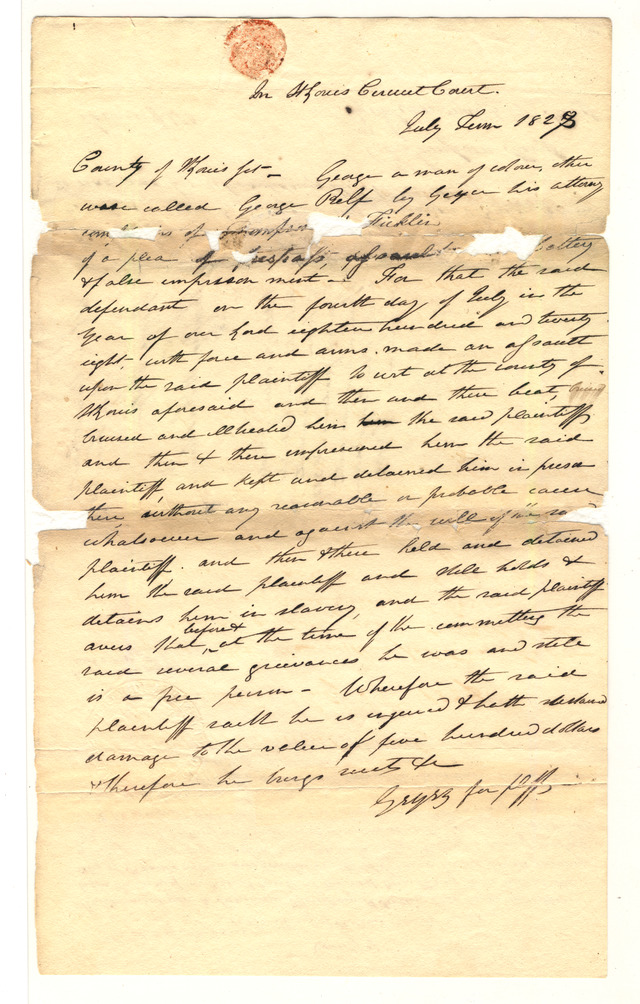 In St Louis Circuit Court.
July Term 1828
County of St Louis sct — George a man of colour, other
wise called George Relf by Geyer his attorney
complains of Ficklin
of a plea of trespass, assault battery
& false imprisonment — For that the said
defendant on the fourth day of July in the
Year of our Lord eighteen hundred and twenty
eight, with force and arms. made an assault
upon the said plaintiff to wit at the county of
St Louis aforesaid and then and there beat,
bruised and illtreated him him the said plaintiff
and then & there imprisoned him the said
plaintiff, and kept and detained him in prison
there, without any reasonable or probable cause
whatsoever and against the will of the said
plaintiff. and then & there held and detained
him the said plaintiff and still holds &
detains him in slavery, and the said plaintiff
avers that, before & at the time of the committing the
said several grievances he was and still
is a free person — Wherefore the said
plaintiff saith he is injured & hath sustained
damage to the value of five hundred dollars
& therefore he brings suit &c
Geyer for plff